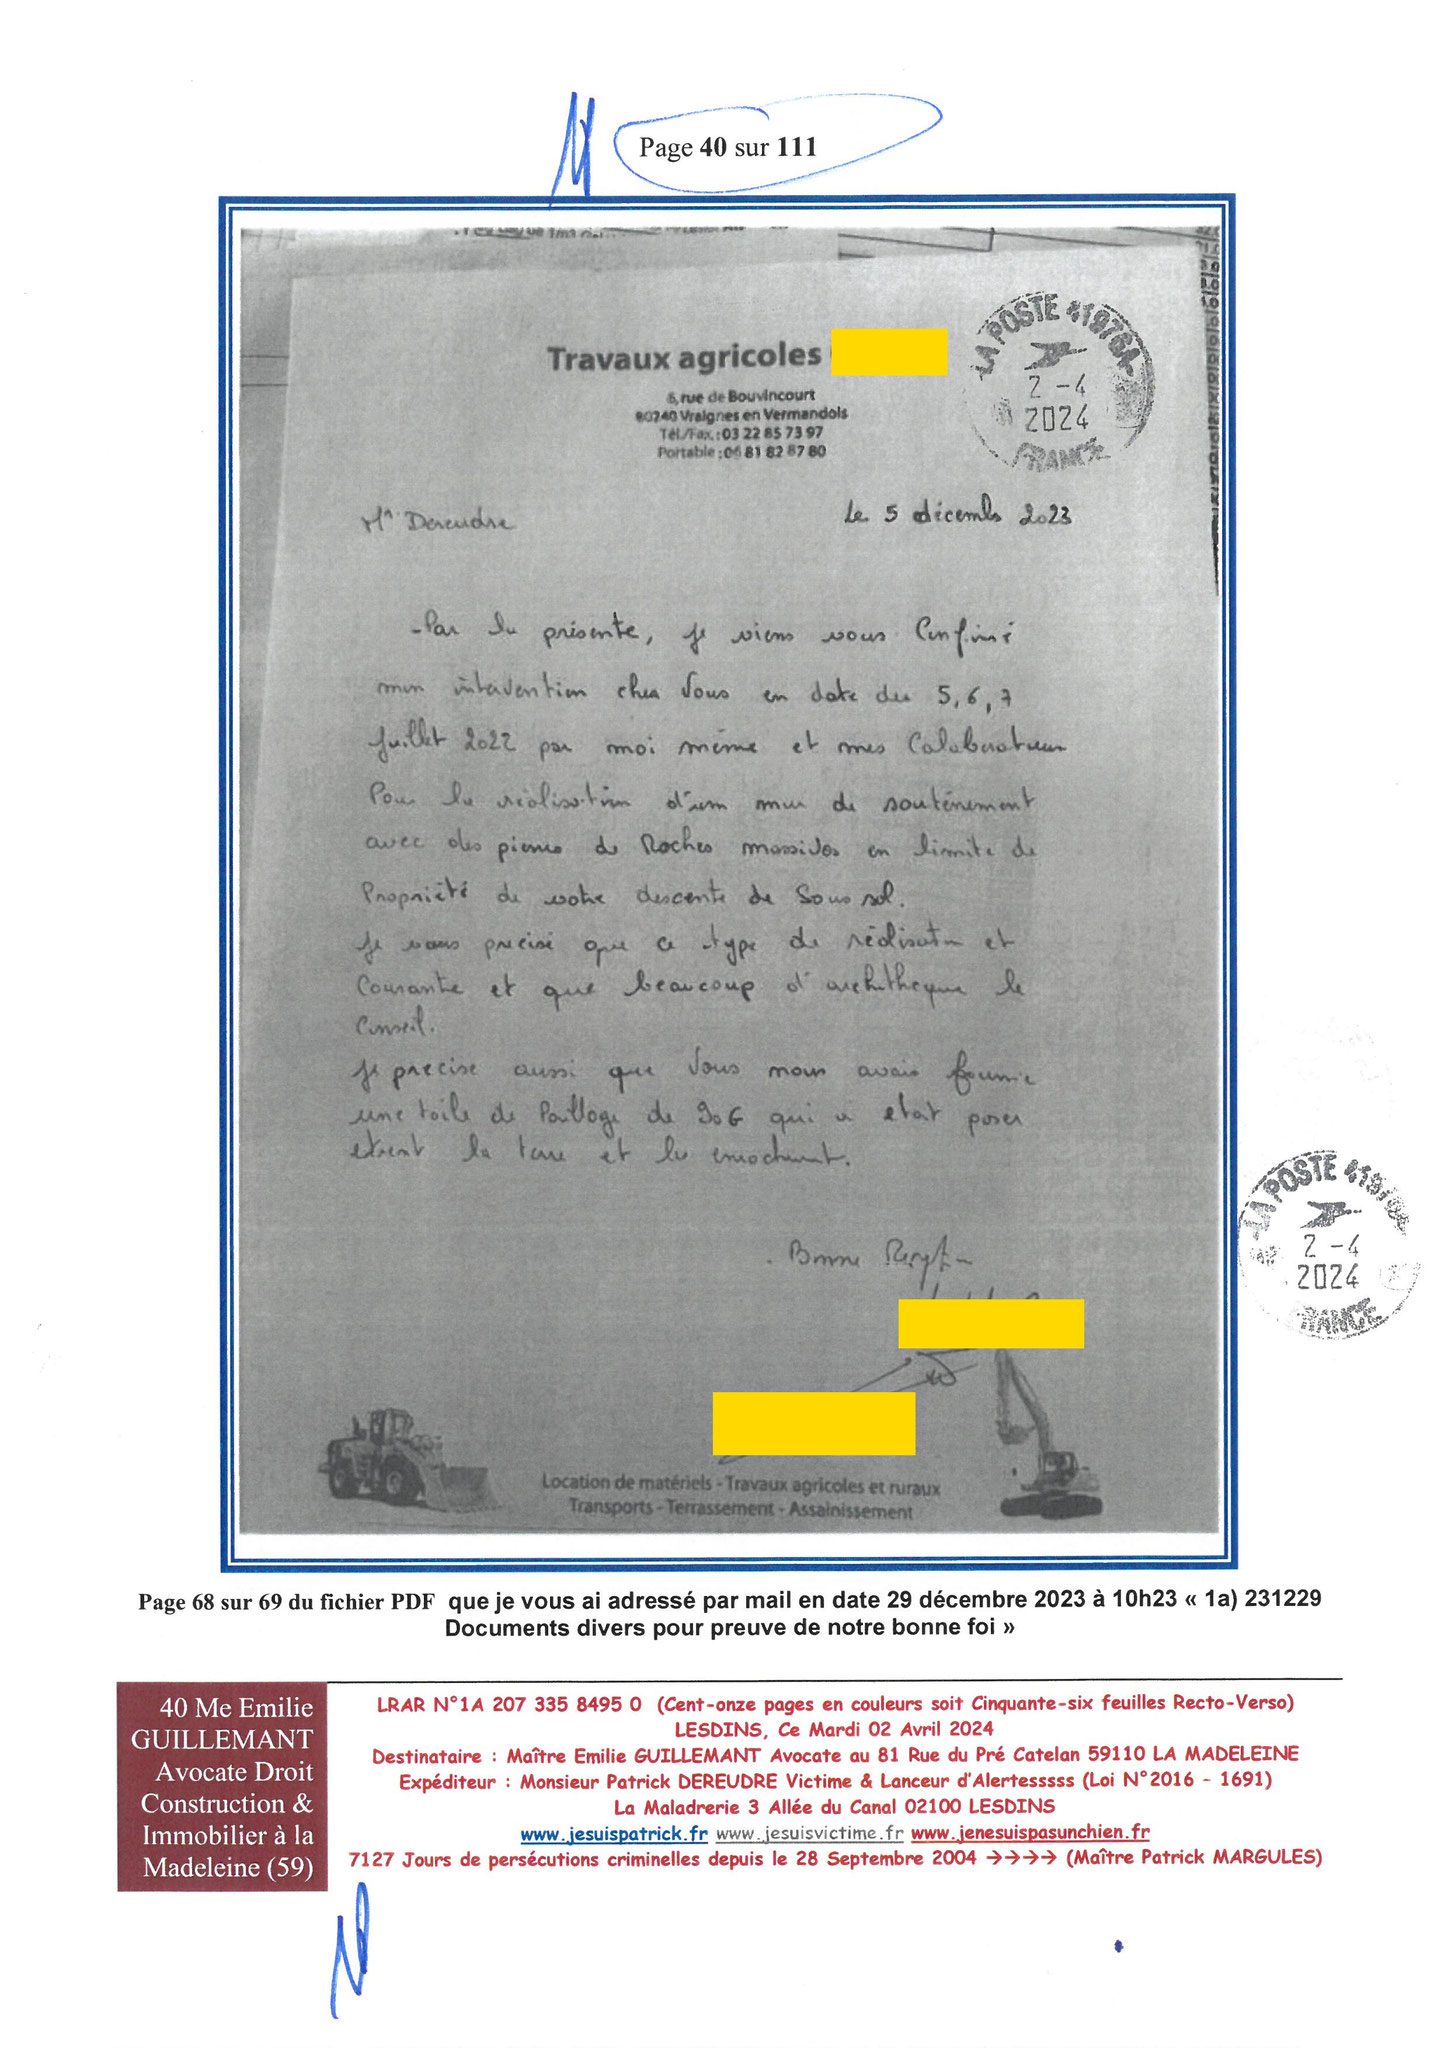 Page 40 sur 111
Travaux agricoles
6, rue de Bouvincourt
80240 Vraignes en Vermandois
Tél./Fax.: 03 22 85 73 97
Portable : 06 81 82 87 80
LA POSTE 41976A
2 -4
2024
FRANCE
Mr Dereudre
Le 5 décembre 2023
Par la présente, je viens vous Confirmé
mon intervention chez Vous en date du 5, 6, 7
Juillet 2022 par moi même et mes Colaborateur
Pour la réalisation d'un mur de souténement
avec des pierres de Roches massives en limite de
Propriété de votre descente de Sous sol.
Je vous precisé que ce type de réalisation et
Courante et que beaucoup d'architheque le
Conseil.
Je precise aussi que Vous nous avais fournie
une toile de Paillage de 90G qui a etait poser
la terre et le enrochement.
Bonne
Location de matériels - Travaux agricoles et ruraux
Transports - Terrassement - Assainissement
LA POSTE 41976A
2 -4
2024
FRANCE
Page 68 sur 69 du fichier PDF que je vous ai adressé par mail en date 29 décembre 2023 à 10h23 « 1a) 231229
Documents divers pour preuve de notre bonne foi »
40 Me Emilie
GUILLEMANT
Avocate Droit
Construction &
Immobilier à la
Madeleine (59)
LRAR N°1A 207 335 8495 0 (Cent-onze pages en couleurs soit Cinquante-six feuilles Recto-Verso)
LESDINS, Ce Mardi 02 Avril 2024
Destinataire : Maître Emilie GUILLEMANT Avocate au 81 Rue du Pré Catelan 59110 LA MADELEINE
Expéditeur : Monsieur Patrick DEREUDRE Victime & Lanceur d'Alertesssss (Loi N°2016 - 1691)
La Maladrerie 3 Allée du Canal 02100 LESDINS
www.jesuispatrick.fr www.jesuisvictime.fr www.jenesuispasunchien.fr
7127 Jours de persécutions criminelles depuis le 28 Septembre 2004 →→→→ (Maître Patrick MARGULES)